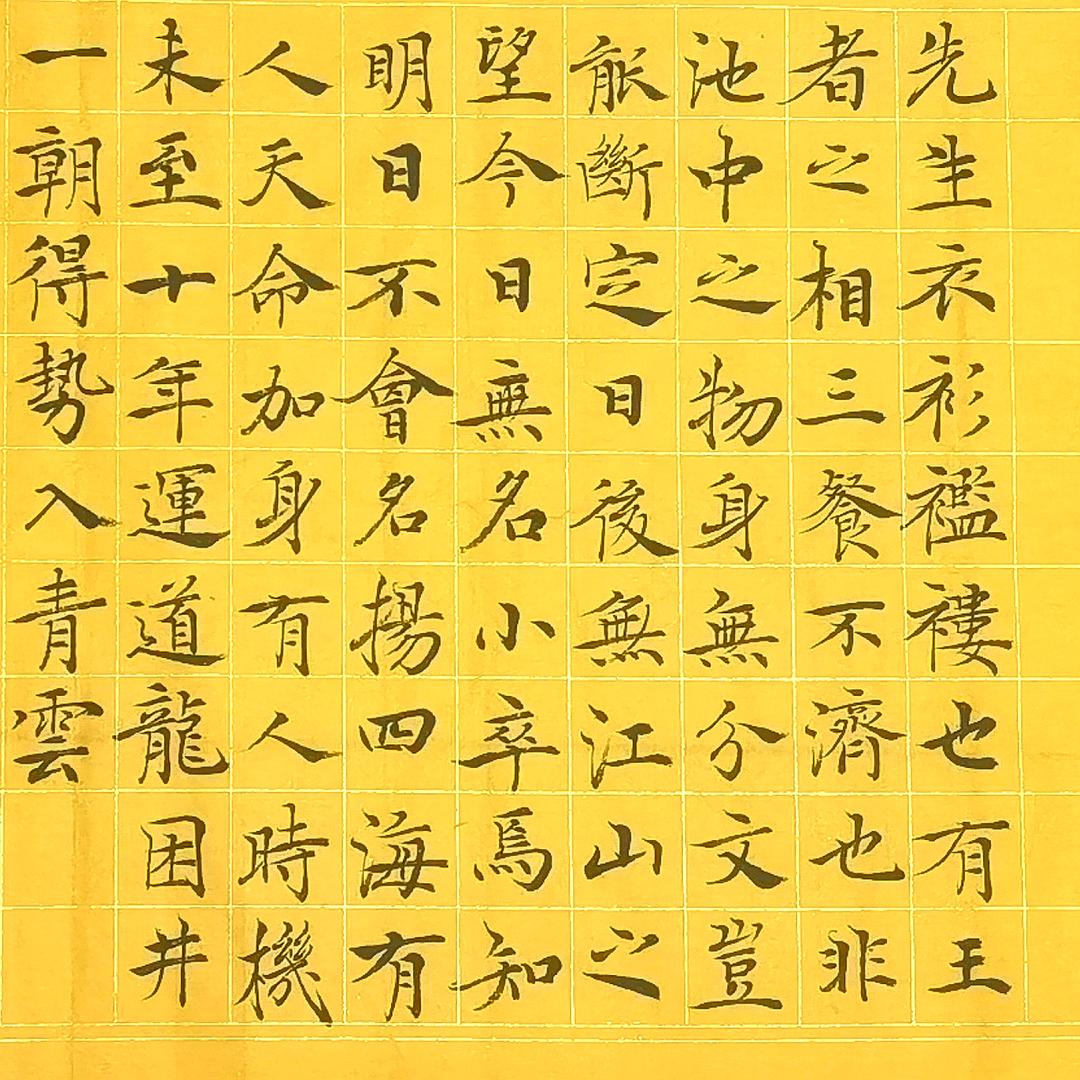 先生衣衫襤褸也有王
者之相三餐不濟也非
池中之物身無分文豈
能斷定日後無江山之
望今日無名小卒焉知
明日不會名揚四海有
人天命加身有人時機
未至十年運道龍困井
一朝得勢入青雲